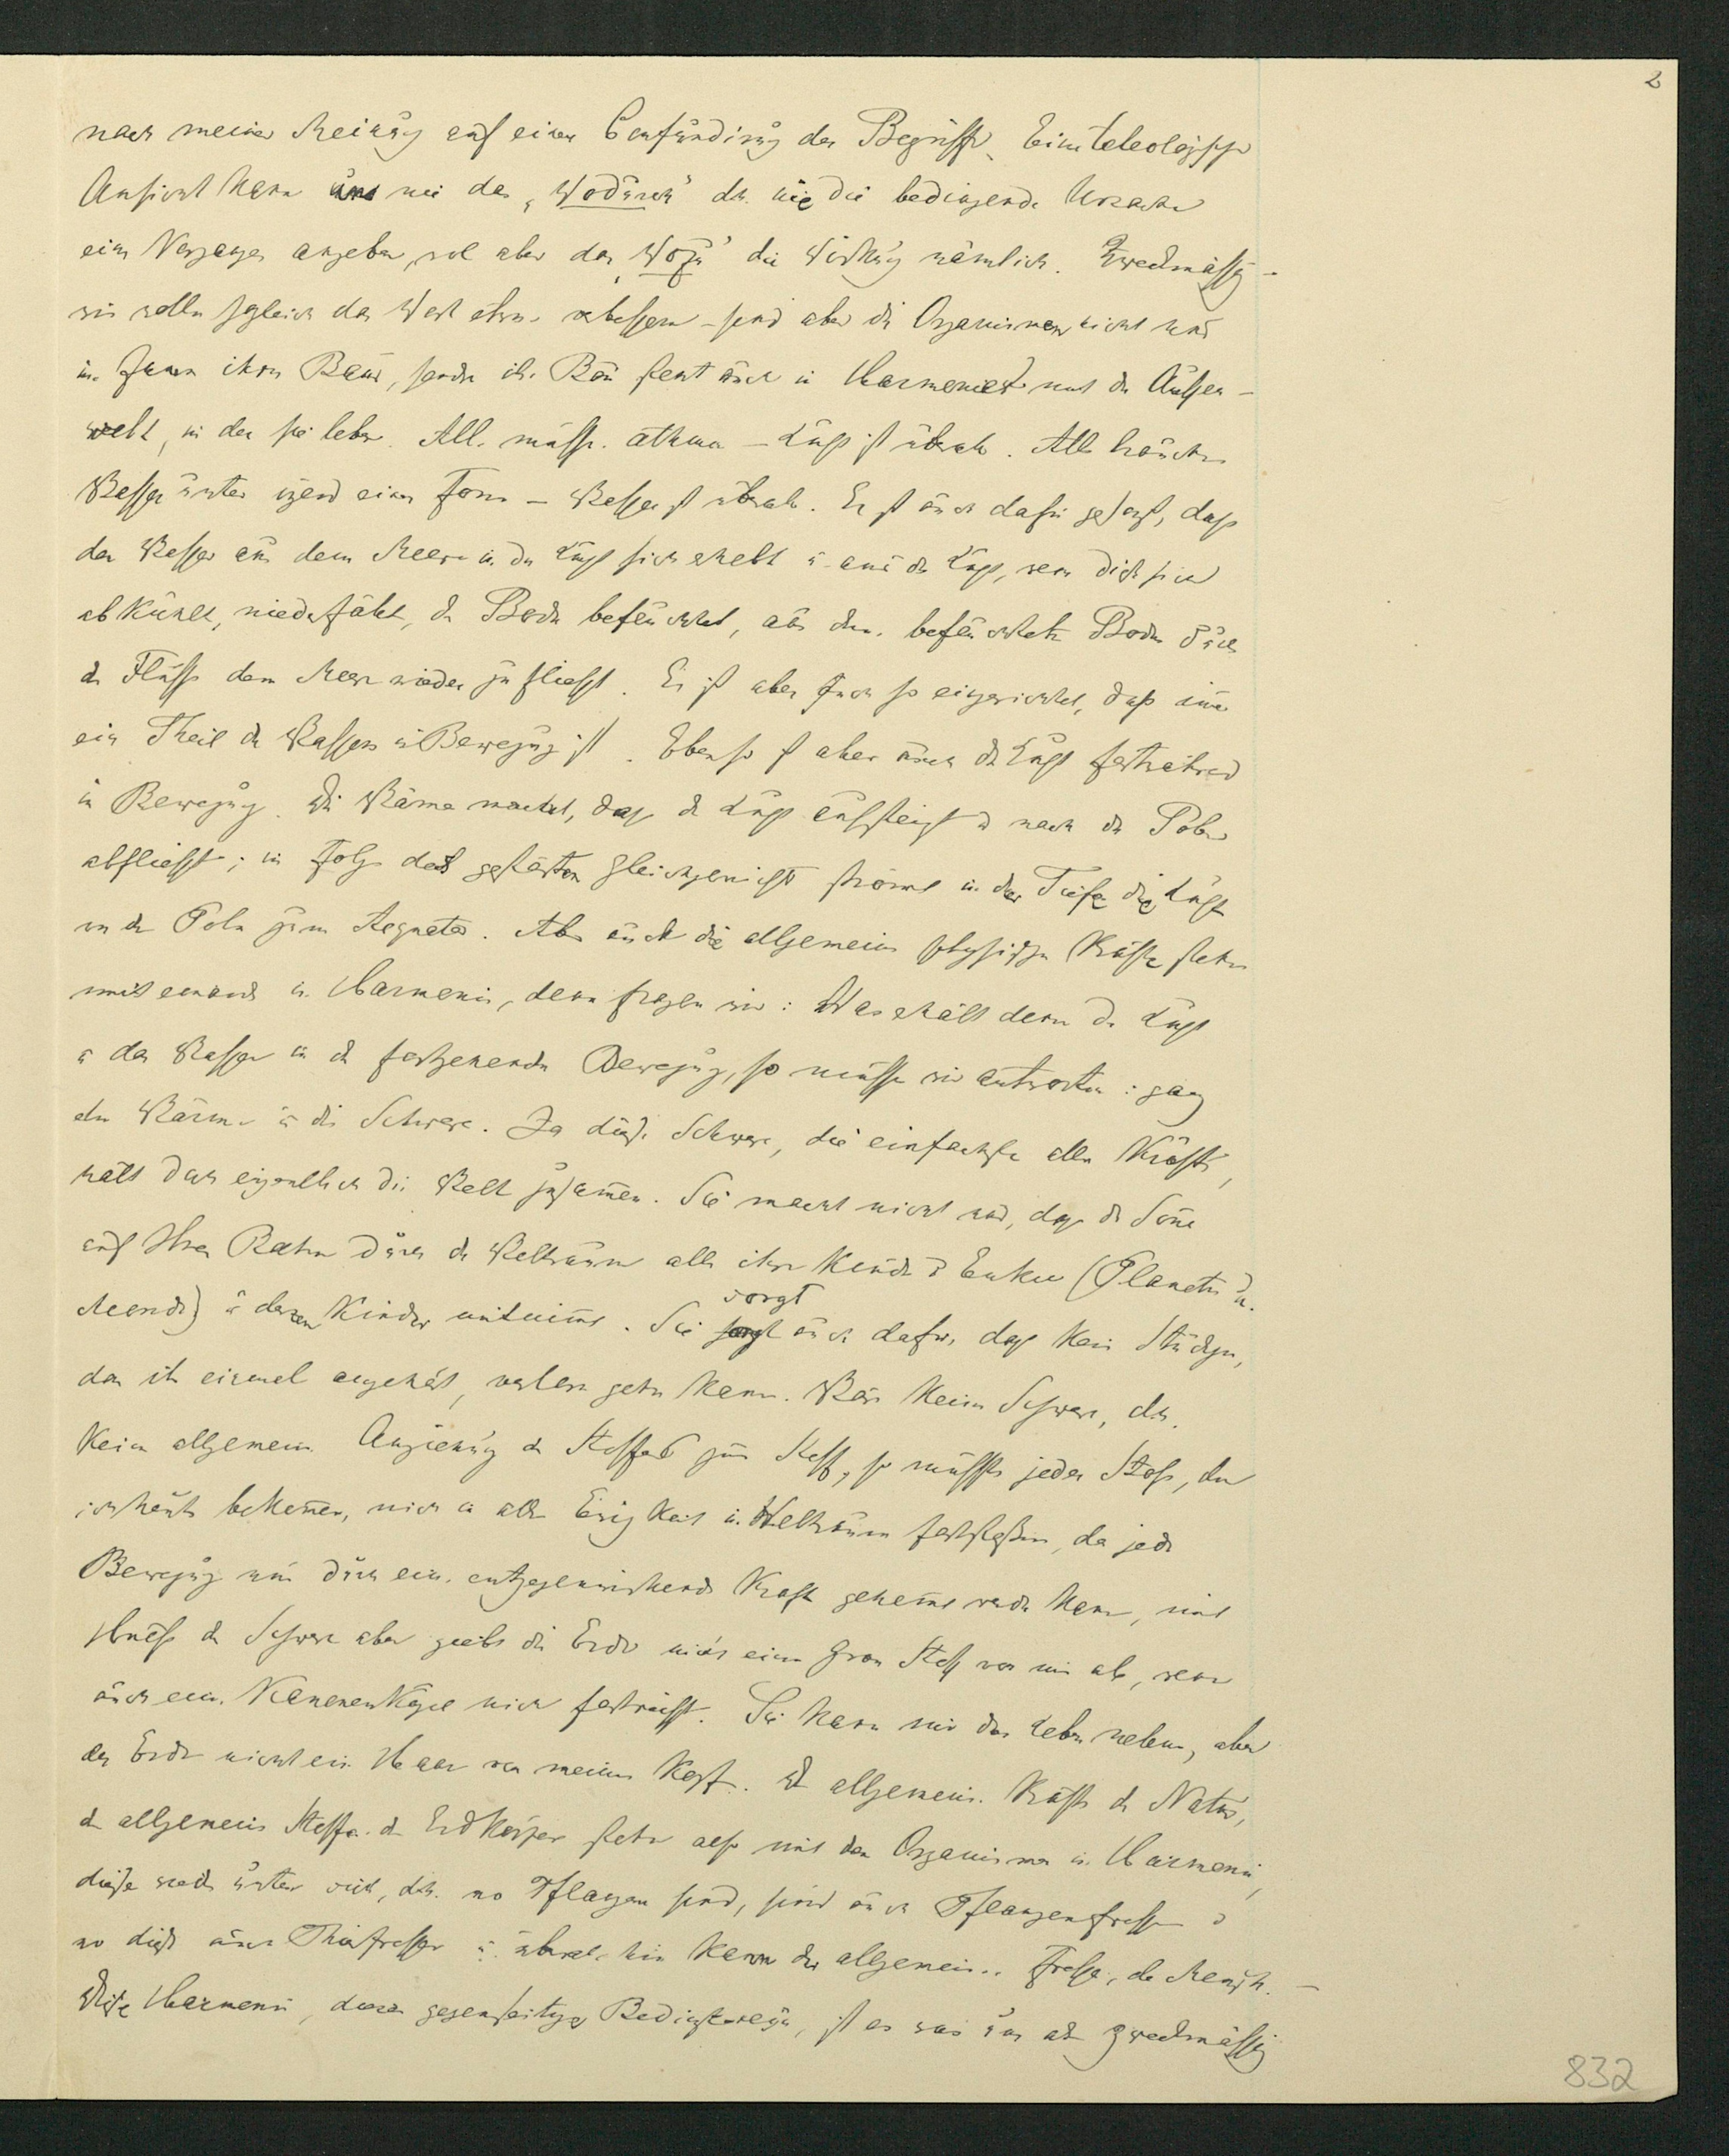 2
nach meiner Meinung auf einer Confundirung der Begriffe. Eine teleologische
Ansicht kann uns nie das „Wodurch" dh. nie die bedingende Ursache
eines Vorganges angeben, wol aber das „Wozu" die Wirkung nämlich. Zweckmässig -
wir wollen sogleich das Wort etwas verbessern - sind aber die Organismen nicht nur
im Innern ihres Baus, sondern ihr Bau steht auch in Harmonie mit der Außen-
welt, in der sie leben. Alle müssen athmen - Luft ist überall. Alle brauchen
Wasser unter irgend einer Form - Wasser ist überall. Es ist auch dafür gesorgt, daß
das Wasser aus dem Meere in die Luft sich erhebt u. aus der Luft, wenn diese sich
abkühlt, niederfällt, den Boden befeuchtet, aus dem befeuchteten Boden durch
die Flüsse dem Meere wieder zufliesst. Es ist aber auch so eingerichtet, daß immer
ein Theil des Wassers in Bewegung ist. Ebenso ist aber auch die Luft fortwährend
in Bewegung. Die Wärme macht, daß die Luft aufsteigt u. nach den Polen
abfliesst; in Folge des gestörten Gleichgewichts strömt in der Tiefe die Luft
von den Polen zum Aequator. Aber auch die allgemeinen physischen Kräfte stehen
mit einander in Harmonie, denn fragen wir: Was erhält denn die Luft
u. das Wasser in der fortgehenden Bewegung, so müssen wir antworten: ganz
die Wärme u. die Schwere. Ja diese Schwere, die einfachste aller Kräfte,
hält doch eigentlich die Welt zusammen. Sie macht nicht nur, daß die Sonne
auf ihrer Bahn durch den Weltraum alle ihre Kinder u. Enkel (Planeten u.
Monde) u. deren Kinder mitnimmt. Sie sorgt auch dafür, daß kein Stückchen,
das ihr einmal angehört, verloren gehen kann. Wäre keine Schwere, dh.
keine allgemeine Anziehung des Stoffes zum Stoff, so müsste jeder Stoß, den
ich heute bekomme, mich in alle Ewigkeit im Weltraum fortstoßen, da jede
Bewegung nur durch eine entgegenwirkende Kraft gehemmt werden kann, mit
Hülfe der Schwere aber giebt die Erde nicht einen Gran Stoff von mir ab, wenn
auch eine Kanonenkugel mich fortreisst. Sie kann mir das Leben nehmen, aber
der Erde nicht ein Haar von meinem Kopf. Die allgemeinen Kräfte der Natur,
die allgemeinen Stoffe des Erdkörpers stehen also mit den Organismen in Harmonie,
diese wieder unter sich, dh. wo Pflanzen sind, sind auch Pflanzenfresser u.
wo diese auch Thierfresser u. überall hin kann der allgemeine Fresser, der Mensch. -
Diese Harmonie, dieses gegenseitige Bedingtseyn, ist es was uns als zweckmässig
832